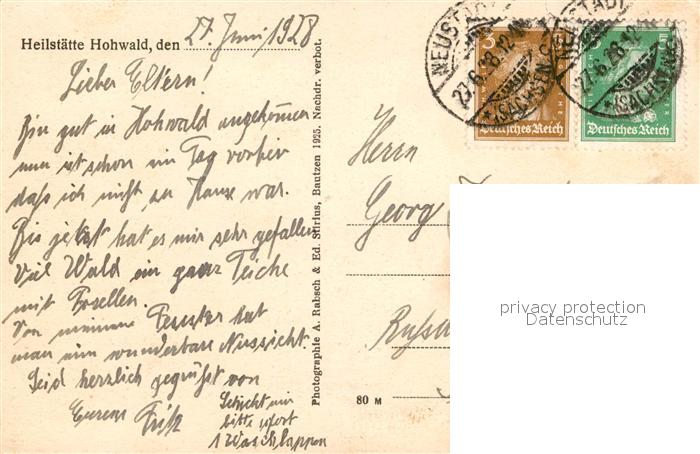 Heilstätte Hohwald, den 27. Juni 1928
Lieber Eltern!
Bin gut in Hohwald angekommen
nun ist schon ein Tag vorbei
daß ich nicht zu Hause war.
Bis jetzt hat es mir sehr gefallen
Viel Wald ein paar Teiche
mit Forellen.
Von meinem Fenster hat
man eine wunderbare Aussicht.
Seid herzlich gegrüßt von
Eurem Fritz
Schickt mir
bitte sofort
1 Waschlappen
Photographie A. Rabsch & Ed. Stirius, Bautzen 1925. Nachdr. verbot.
NEUSTADT
27.6.28.12
(SACHSEN)
NEUSTADT
27.6.28.12
(SACHSEN)
3
Deutsches Reich
5
Deutsches Reich
Herrn
Georg
80 M
privacy protection
Datenschutz